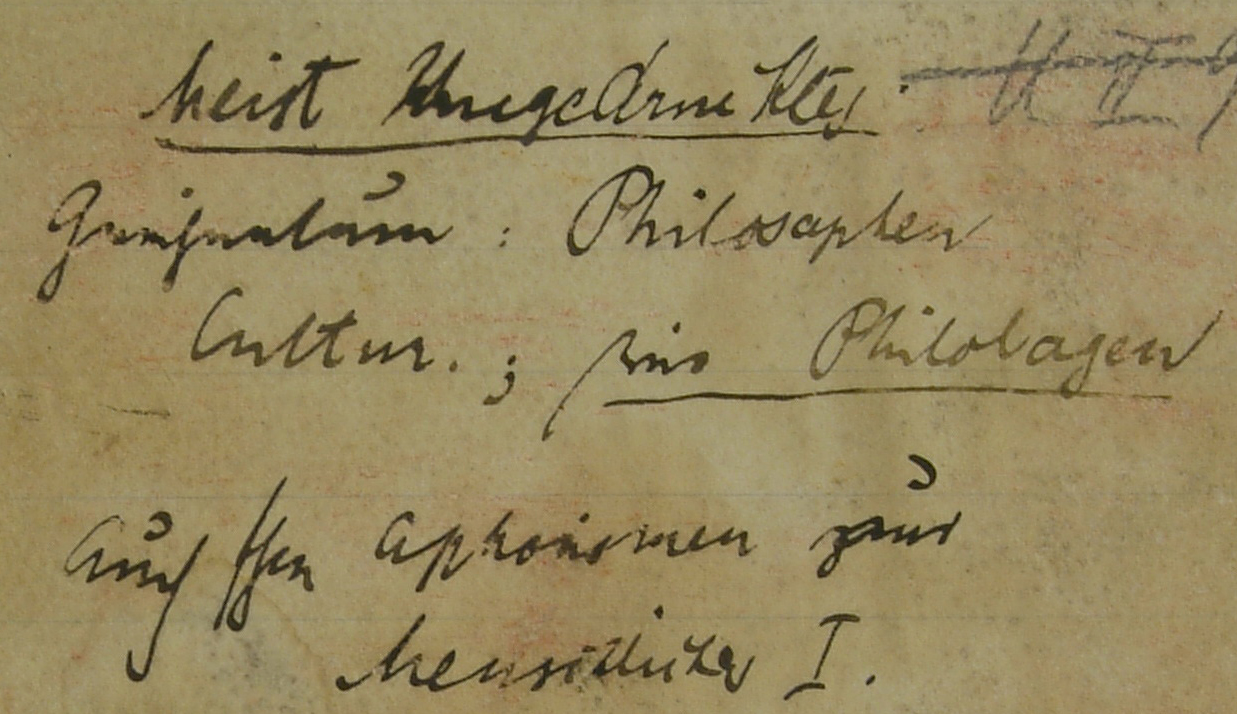 Meist Ungedrucktes.
Griechentum: Philosophen
Cultur.; wir Philologen
Auch schon Aphorismen zur
Menschliches I.